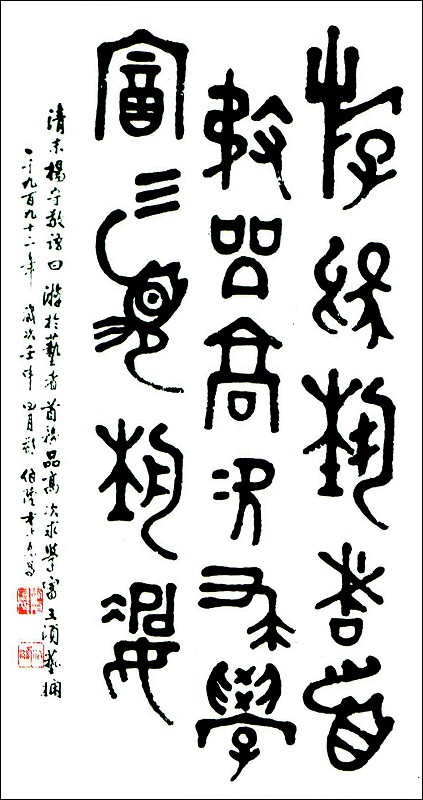 游於藝者首
務品高次求學
富三須藝嫻
清末楊守敬語曰游於藝者首務品高次求學富三須藝嫻
一千九百九十二年歲次壬申四月